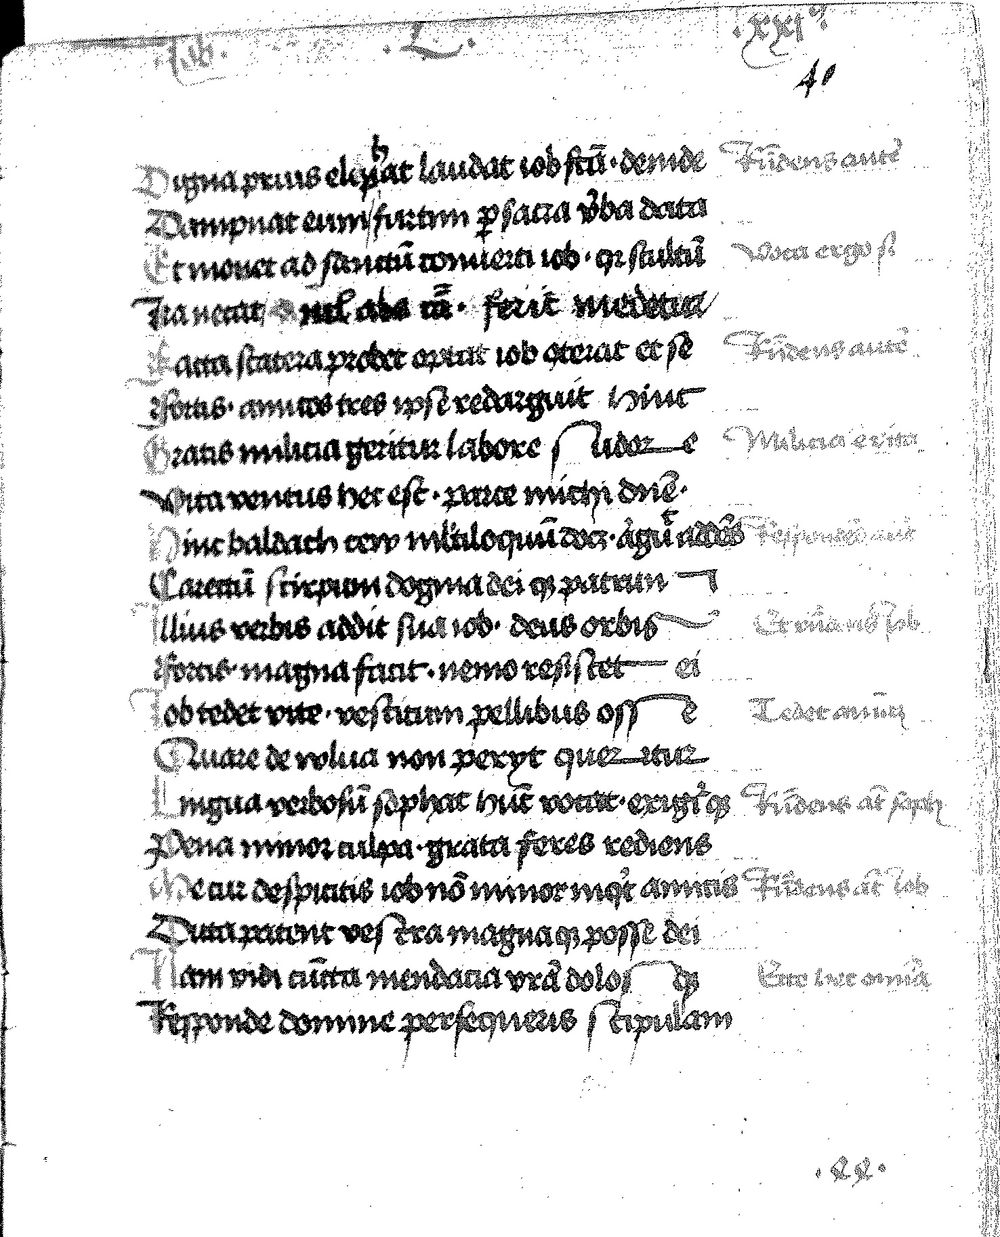 Job. .L. .xxi.
40
Digna prius elip\at laudat iob scū· deinde
Dampnat eum furtim p sacra v̄ba data
Et monet ad sanctū conuerti iob· qr stultū
Ira necat nil abs cā· ferit medetur
Facta statera probet optat iob et se
Fortis· amicos tres ipse redarguit Hinc
Gratis milicia geritur labore sudore
Vita ventus hec est· parce michi dnē·
Hinc baldach cew mltiloquū
Carectū scirpum dogma dei qz patrum
Illius verbis addit sua iob· deus orbis
Fortis· magna facit· nemo resistet ei
Iob tedet vite· vestitum pellibus osse
Quare de volua non peryt queritur
Lingua verbosū sophat Hūc vocat· exigiqz
Pena minor culpa· grata feres rediens
Me cur despicitis iob nō minor inqt amicis
Dicta patent vestra magnaqz posse dei
Nam vidi cūcta mendacia vrā dolosqz
Responde domine persequeris stipulam
Rn̄dens autē
Verba ergo
Rn̄dens autē
Milicia e vita
Respondēs aut
Et rn̄dens iob
Tedet animā
Rn̄dens at soph
Rn̄dens at iob
Ecce hec omīa